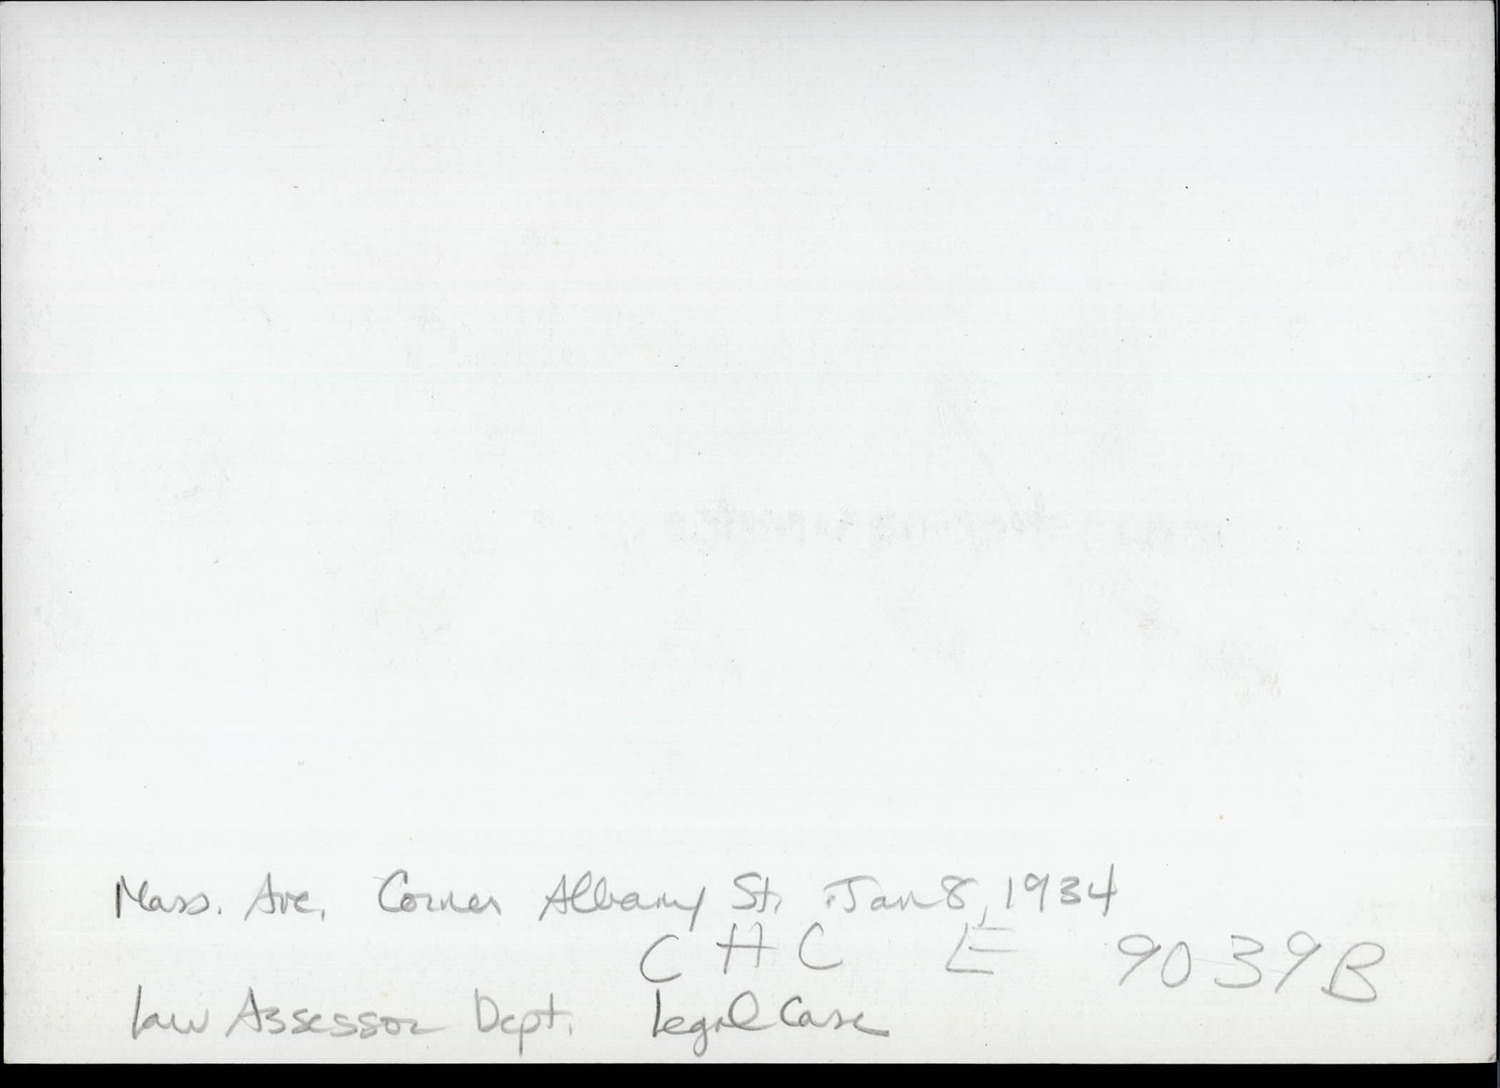 Mass. Ave. Corner Albany St. Jan 8, 1934
CHC E 9039B
Law Assessor Dept. Legal Case